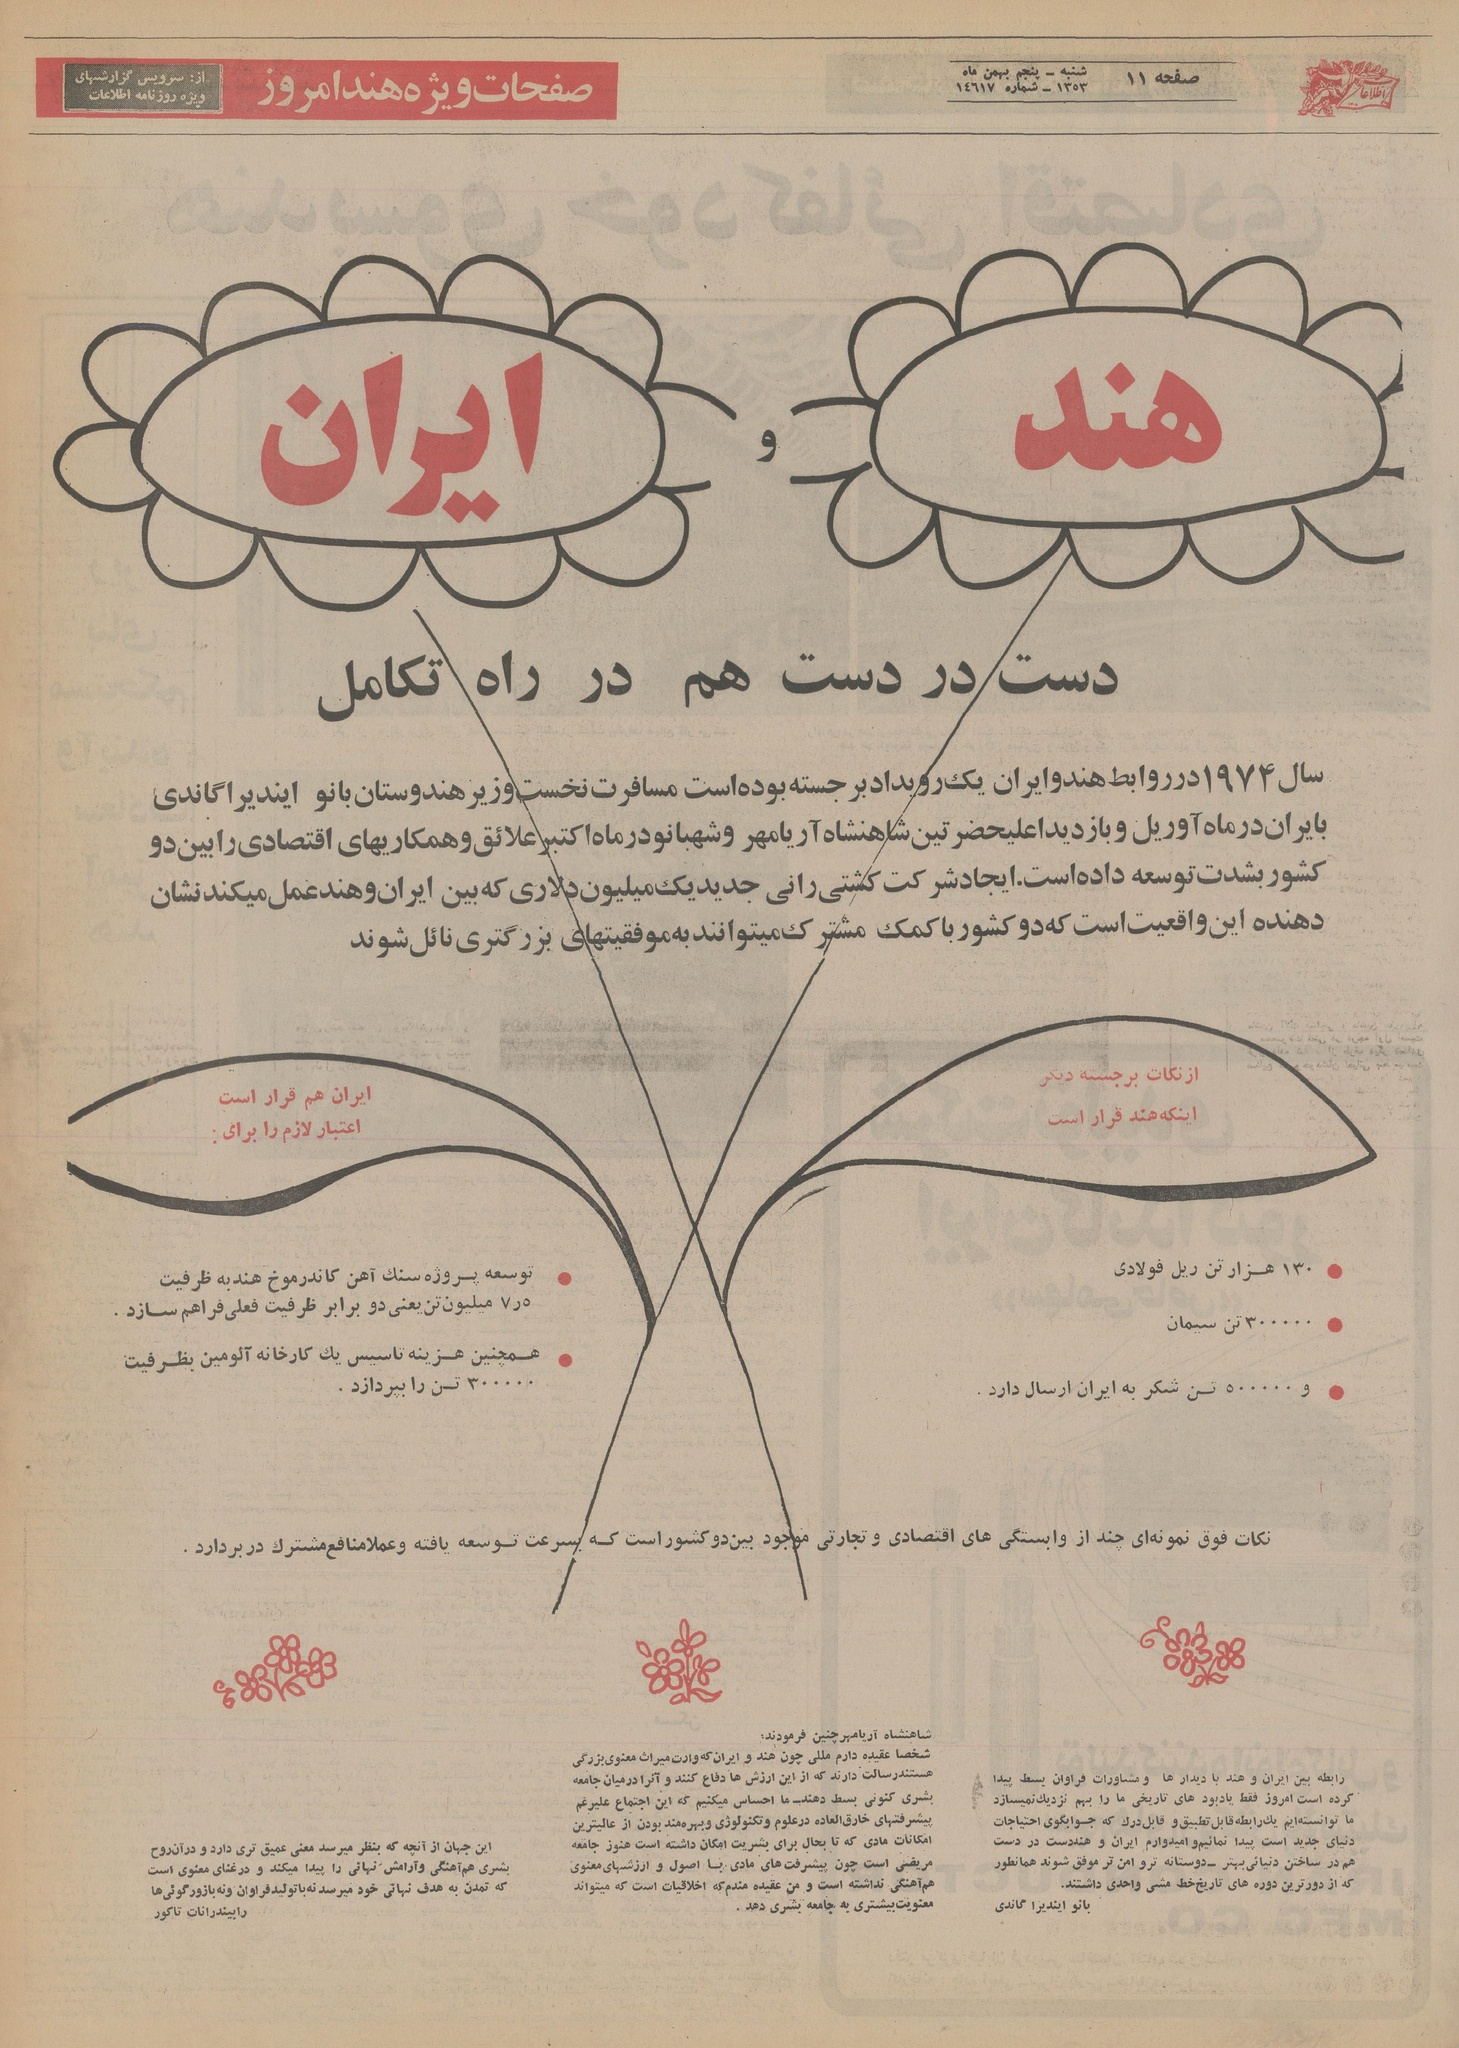 اطلاعات
صفحه ۱۱
شنبه ـ پنجم بهمن ماه
۱۳۵۳ ـ شماره ۱٤٦۱۷
صفحات ویژه هند امروز
از: سرویس گزارشهای
ویژه روزنامه اطلاعات
هند
و
ایران
دست در دست هم در راه تکامل
سال ۱۹۷۴ در روابط هند و ایران یک رویداد برجسته بوده است مسافرت نخست وزیر هندوستان بانو ایندیرا گاندی
بایران در ماه آوریل و بازدید اعلیحضرتین شاهنشاه آریامهر و شهبانو در ماه اکتبر علائق و همکاریهای اقتصادی را بین دو
کشور بشدت توسعه داده است. ایجاد شرکت کشتی رانی جدید یک میلیون دلاری که بین ایران و هند عمل میکند نشان
دهنده این واقعیت است که دو کشور با کمک مشترک میتوانند به موفقیتهای بزرگتری نائل شوند
از نکات برجسته دیگر
اینکه هند قرار است
۱۳۰ هزار تن ریل فولادی
۳۰۰۰۰۰ تن سیمان
و ۵۰۰۰۰۰ تن شکر به ایران ارسال دارد .
ایران هم قرار است
اعتبار لازم را برای :
توسعه پروژه سنگ آهن کاندرموخ هند به ظرفیت
۷ر۵ میلیون تن یعنی دو برابر ظرفیت فعلی فراهم سازد .
همچنین هزینه تاسیس یک کارخانه آلومین بظرفیت
۳۰۰۰۰۰ تن را بپردازد .
نکات فوق نمونه‌ای چند از وابستگی های اقتصادی و تجارتی موجود بین دو کشور است که بسرعت توسعه یافته و عملا منافع مشترک دربردارد .
رابطه بین ایران و هند با دیدار ها و مشاورات فراوان بسط پیدا
کرده است امروز فقط یادبود های تاریخی ما را بهم نزدیک نمیسازد
ما توانسته‌ایم یک رابطه قابل تطبیق و قابل درک که جوابگوی احتیاجات
دنیای جدید است پیدا نمائیم و امیدوارم ایران و هند دست در دست
هم در ساختن دنیائی بهتر ـ دوستانه تر و امن تر موفق شوند همانطور
که از دورترین دوره های تاریخ خط مشی واحدی داشتند.
بانو ایندیرا گاندی
شاهنشاه آریامهر چنین فرمودند:
شخصا عقیده دارم مللی چون هند و ایران که وارث میراث معنوی بزرگی
هستند رسالت دارند که از این ارزش ها دفاع کنند و آنرا درمیان جامعه
بشری کنونی بسط دهند ـ ما احساس میکنیم که این اجتماع علیرغم
پیشرفتهای خارق‌العاده در علوم و تکنولوژی و بهره‌مند بودن از عالیترین
امکانات مادی که تا بحال برای بشریت امکان داشته است هنوز جامعه
مریضی است چون پیشرفت های مادی با اصول و ارزشهای معنوی
هم‌آهنگی نداشته است و من عقیده مندم که اخلاقیات است که میتواند
معنویت بیشتری به جامعه بشری دهد .
این جهان از آنچه که بنظر میرسد معنی عمیق تری دارد و در آن روح
بشری هم‌آهنگی و آرامش نهائی را پیدا میکند و در غنای معنوی است
که تمدن به هدف نهائی خود میرسد نه با تولید فراوان و نه بازور گوئی‌ها
رابیندرانات تاگور